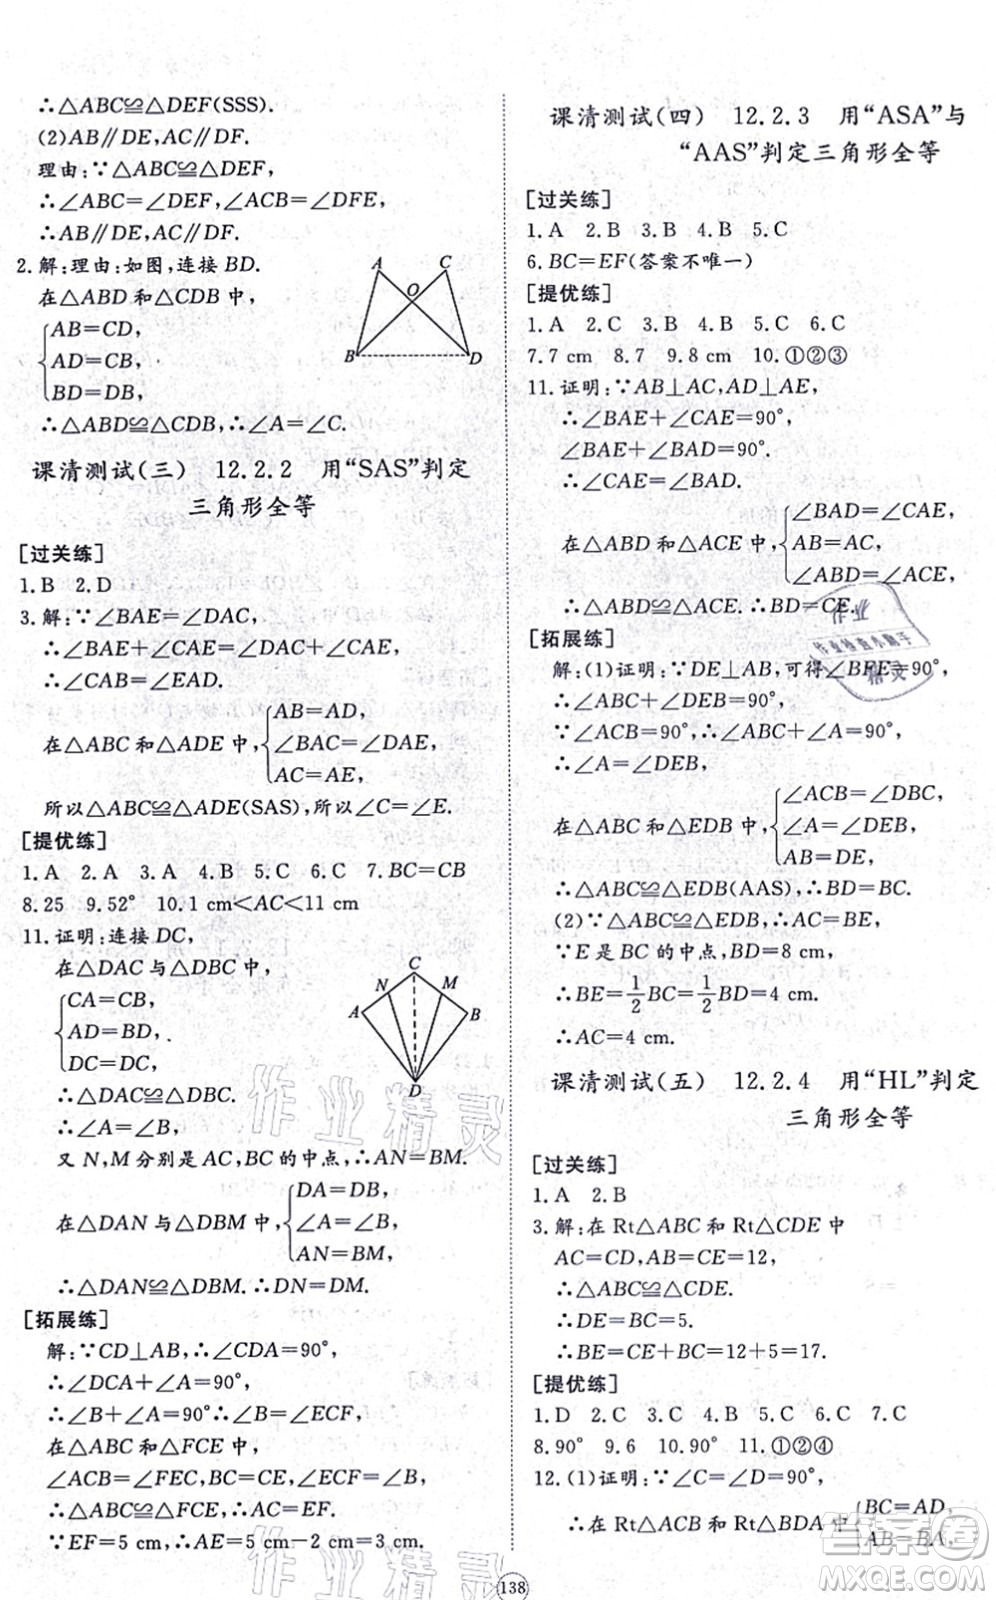 ∴△ABC≌△DEF(SSS).
(2)AB∥DE,AC∥DF.
理由:∵△ABC≌△DEF,
∴∠ABC=∠DEF,∠ACB=∠DFE,
∴AB∥DE,AC∥DF.
2.解:理由:如图,连接BD.
在△ABD和△CDB中,
AB=CD,
AD=CB,
BD=DB,
A C O B D
∴△ABD≌△CDB,∴∠A=∠C.
课清测试(三) 12.2.2 用“SAS”判定
三角形全等
[过关练]
1.B 2.D
3.解:∵∠BAE=∠DAC,
∴∠BAE+∠CAE=∠DAC+∠CAE,
∴∠CAB=∠EAD.
在△ABC和△ADE中,
AB=AD,
∠BAC=∠DAE,
AC=AE,
所以△ABC≌△ADE(SAS),所以∠C=∠E.
[提优练]
1.A 2.A 3.A 4.B 5.C 6.C 7.BC=CB
8.25 9.52° 10.1 cm<AC<11 cm
11.证明:连接DC,
在△DAC与△DBC中,
CA=CB,
AD=BD,
DC=DC,
C N M A B D
∴△DAC≌△DBC.
∴∠A=∠B.
又N,M分别是AC,BC的中点,∴AN=BM.
在△DAN与△DBM中,
DA=DB,
∠A=∠B,
AN=BM,
∴△DAN≌△DBM.∴DN=DM.
[拓展练]
解:∵CD⊥AB,∴∠CDA=90°,
∴∠DCA+∠A=90°,
∴∠B+∠A=90°,∴∠B=∠ECF,
在△ABC和△FCE中,
∠ACB=∠FEC,BC=CE,∠B=∠ECF,
∴△ABC≌△FCE,∴AC=EF.
∵EF=5 cm,∴AE=5 cm-2 cm=3 cm.
课清测试(四) 12.2.3 用“ASA”与
“AAS”判定三角形全等
[过关练]
1.A 2.B 3.B 4.B 5.C
6.BC=EF(答案不唯一)
[提优练]
1.A 2.C 3.A 4.B 5.C 6.C
7.7 cm 8.7 9.8 cm 10.①②③
11.证明:∵AB⊥AC,AD⊥AE,
∴∠BAE+∠CAE=90°,
∠BAE+∠BAD=90°,
∴∠CAE=∠BAD.
在△ABD和△ACE中,
∠BAD=∠CAE,
AB=AC,
∠ABD=∠ACE,
∴△ABD≌△ACE.∴BD=CE.
[拓展练]
解:(1)证明:∵DE⊥AB,可得∠BFE=90°,
∴∠ABC+∠DEB=90°,
∵∠ACB=90°,∴∠ABC+∠A=90°,
∴∠A=∠DEB,
在△ABC和△EDB中,
∠ACB=∠DBC,
∠A=∠DEB,
AB=DE,
∴△ABC≌△EDB(AAS),∴BD=BC.
(2)∵△ABC≌△EDB,∴AC=BE,
∵E是BC的中点,BD=8 cm,
∴BE=1/2BC=1/2BD=4 cm,
∴AC=4 cm.
课清测试(五) 12.2.4 用“HL”判定
三角形全等
[过关练]
1.A 2.B
3.解:在Rt△ABC和Rt△CDE中
AC=CD,AB=CE=12,
∴△ABC≌△CDE.
∴DE=BC=5.
∴BE=CE+BC=12+5=17.
[提优练]
1.D 2.C 3.C 4.B 5.D 6.C 7.C
8.90° 9.6 10.90° 11.①②④
12.(1)证明:∵∠C=∠D=90°,
∴在Rt△ACB和Rt△BDA中
BC=AD,
AB=BA,
138
作业精灵
作业精灵
作业检查小助手
答案圈
MXQE.COM